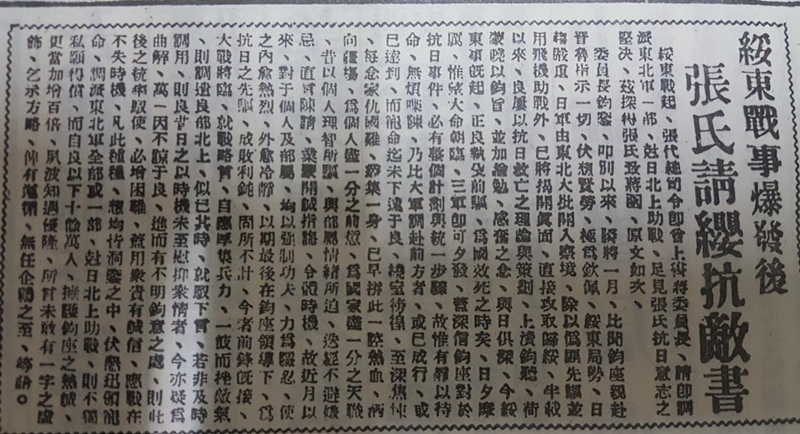 綏東戰事爆發後
張氏請纓抗敵書
綏東戰起、張代總司令即曾上蔣委員長、請即調
派東北軍一部、尅日北上助戰、足見張氏抗日意志之
堅决、茲探得張氏致蔣函、原文如次、
委員長鈞鑒、叩別以來、瞬將一月、比聞鈞座親赴
晉魯指示一切、伏想賢勞、極爲欽佩、綏東局勢、日
趨嚴重、日軍由東北大批開入察境、除以僞匪先驅並
用飛機助戰外、已將揭開眞面、直接攻取歸綏、半載
以來、良屢以抗日救亡之理論與策劃、上瀆鈞聽、荷
蒙曉以鈞旨、並加諭勉、感奮之念、與日俱深、今綏
東事旣起、正良執殳前驅、爲國效死之時矣、日夕摩
厲、惟望大命朝臨、三軍即可夕發、蓋深信鈞座對於
抗日事件、必有整個計劃與統一步驟、故惟有靜以待
命、無煩喋陳、乃比大軍調赴前方者、或已成行、或
已達到、而寵命迄未下逮于良、繞室徬徨、至深焦悚
、每念家仇國難、叢集一身、已早拚此一腔熱血、洒
向疆場、爲個人盡一分之前愆、爲國家盡一分之天職
、昔以個人理智所驅、與部屬情緒所迫、迭經不避嫌
忌、直言陳請、業蒙開誠指誨、令體時機、故近月以
來、對于個人及部屬、均以強制功夫、力爲隱忍、使
之內愈熱烈、外愈冷靜、以期最後在鈞座領導下、爲
抗日之先驅、成敗利鈍、固所不計、今者前鋒旣接、
大戰將臨、就戰略言、自應厚集兵力、一鼓而挫敵氣
、則調遣良部北上、似已其時、就馭下言、若非及時
調用、則良昔日之以時機未至慰抑衆情者、今亦疑爲
曲解、萬一因不諒于良、進而有不明鈞意之處、則此
後之統率馭使、必增困難、蓋用衆貴有誠信、應戰在
不失時機、凡此種種、想均皆洞鑒之中、伏懇迅頒寵
命、調派東北軍全部或一部、尅日北上助戰、則不獨
私願得償、而自良以下十餘萬人、擁護鈞座之熱誠、
更當加增百倍、夙被知遇優隆、所言未敢有一字之虛
飾、乞示方略、俾有遵循、無任企禱之至、等語。